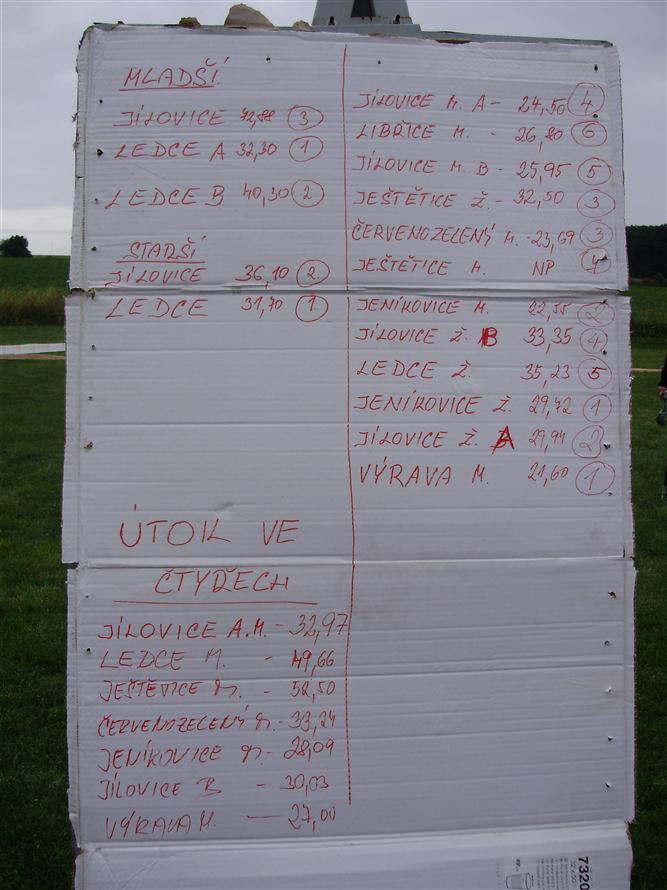 MLADŠÍ
JÍLOVICE 72,88 3
LEDCE A 32,30 1
LEDCE B 40,30 2
STARŠÍ
JÍLOVICE 36,10 2
LEDCE 31,70 1
JÍLOVICE M. A - 24,50 4
LIBŘICE M. - 26,80 6
JÍLOVICE M. B - 25,95 5
JEŠTĚTICE Ž. - 32,50 3
ČERVENOZELENÝ M. - 23,69 3
JEŠTĚTICE M. NP 7
JENÍKOVICE M. 22,55 2
JÍLOVICE Ž. B 33,35 4
LEDCE Ž. 35,23 5
JENÍKOVICE Ž. 29,72 1
JÍLOVICE Ž. A 29,94 2
VÝRAVA M. 21,60 1
ÚTOIL VE
ČTYŘECH
JÍLOVICE A.M. - 32,97
LEDCE M. - 49,66
JEŠTĚTICE M. - 52,50
ČERVENOZELENÝ M. - 33,24
JENÍKOVICE M. - 28,09
JÍLOVICE B - 30,03
VÝRAVA M. — 27,00
7320